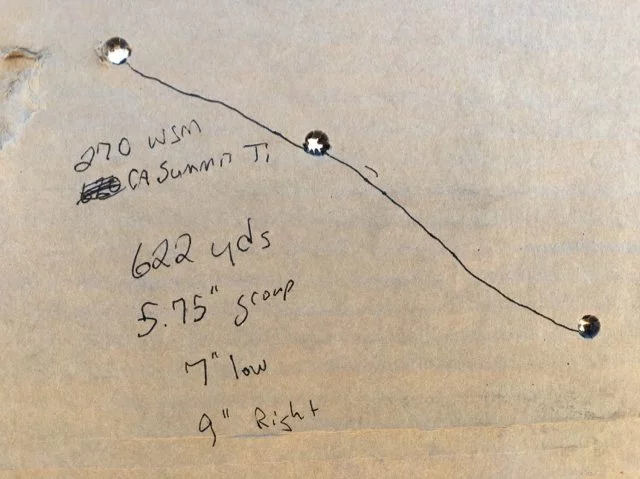 270 WSM
CA Summit Ti
622 yds
5.75" group
7" low
9" Right